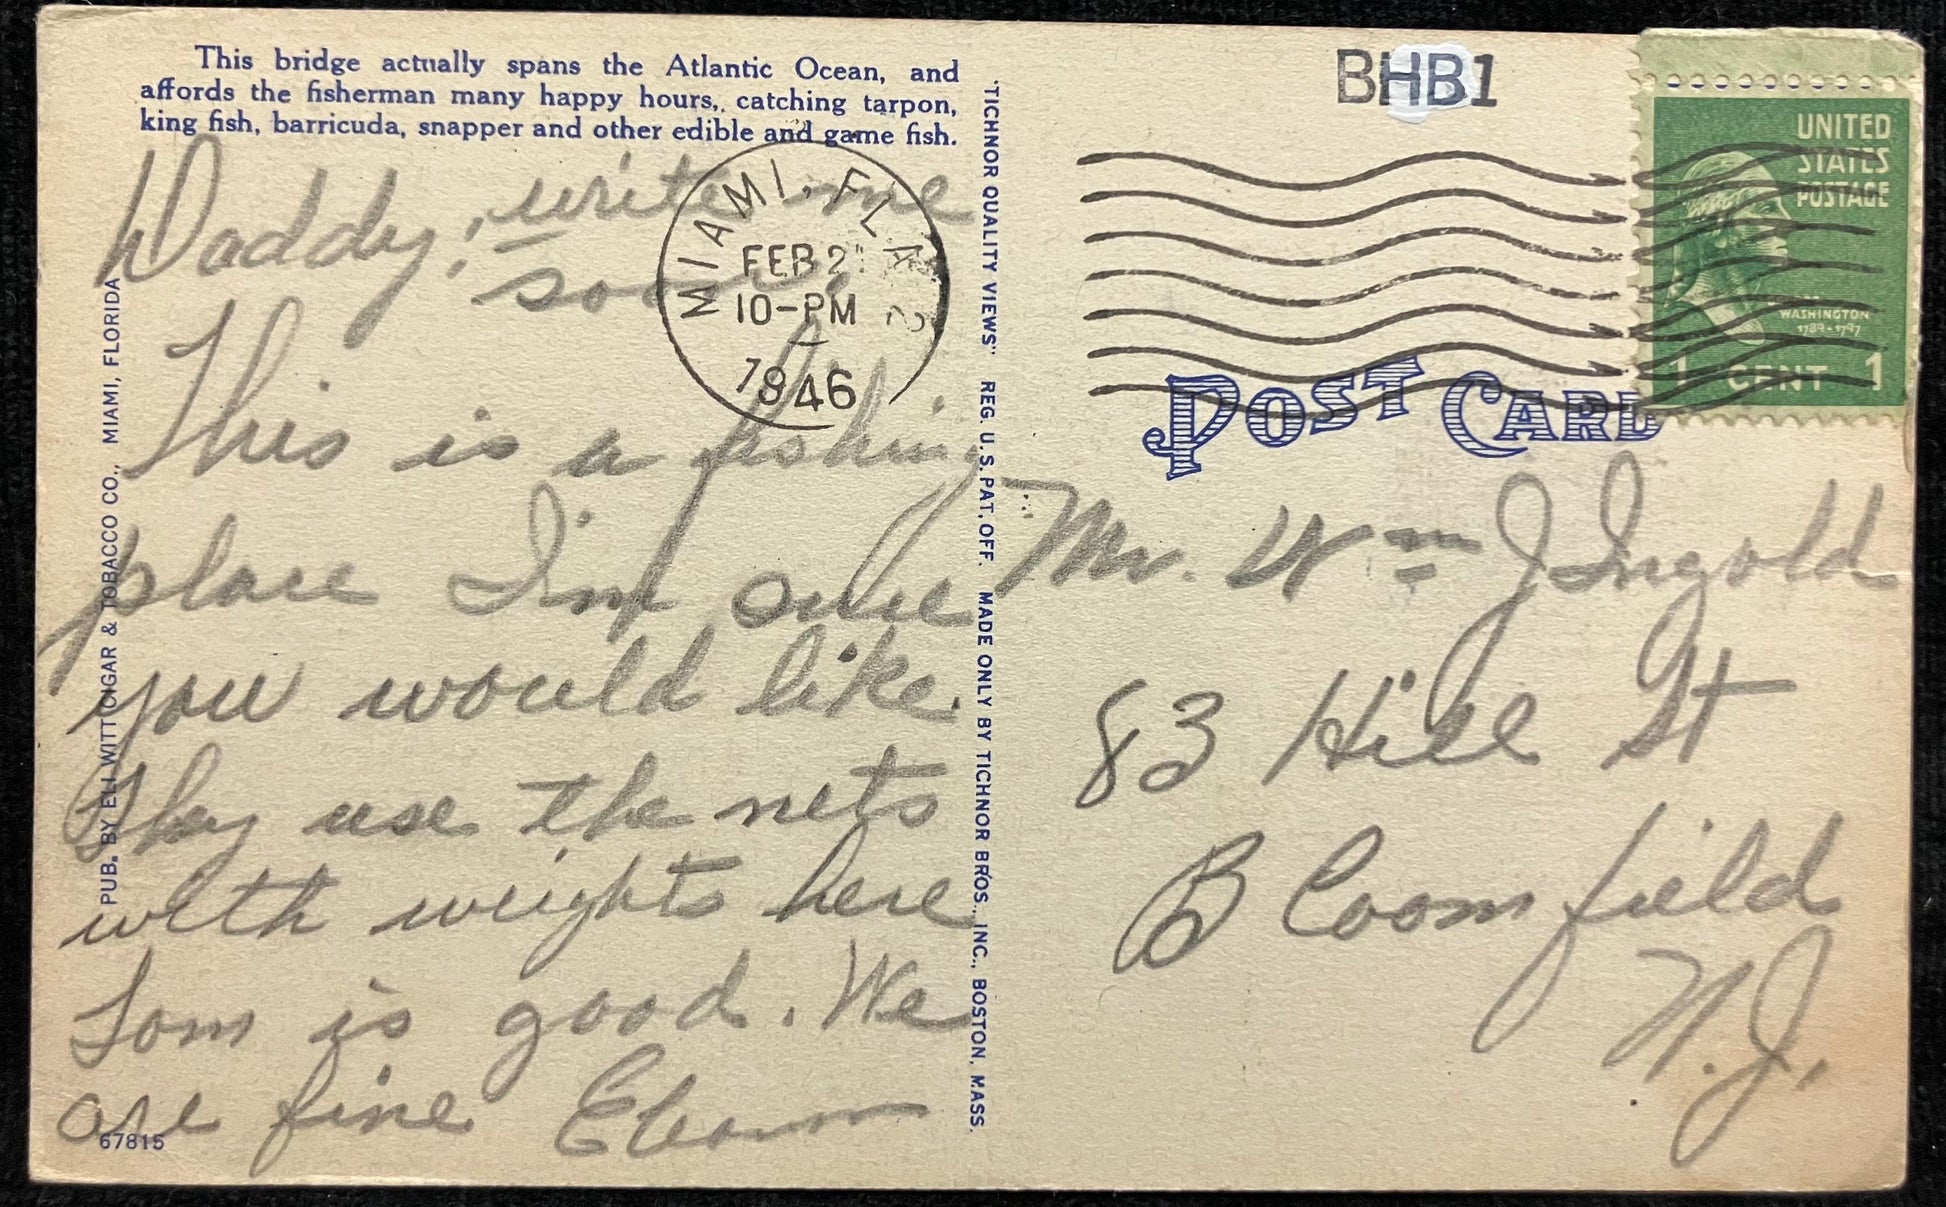 This bridge actually spans the Atlantic Ocean, and
affords the fisherman many happy hours, catching tarpon,
king fish, barricuda, snapper and other edible and game fish.
Daddy; write me
soon.
This is a fishing
place I'm sure
you would like.
They use the nets
with weights here
Tom is good. We
are fine Eleanor
67815
PUB. BY ELI WITT CIGAR & TOBACCO CO., MIAMI, FLORIDA
"TICHNOR QUALITY VIEWS" REG. U. S. PAT. OFF. MADE ONLY BY TICHNOR BROS., INC., BOSTON, MASS.
MIAMI, FLA.
FEB 2
10-PM
1946
BHB1
UNITED
STATES
POSTAGE
WASHINGTON
1789-1797
1 CENT 1
POST CARD
Mr. Wm J Ingold
83 Hill St
Bloomfield
N.J.